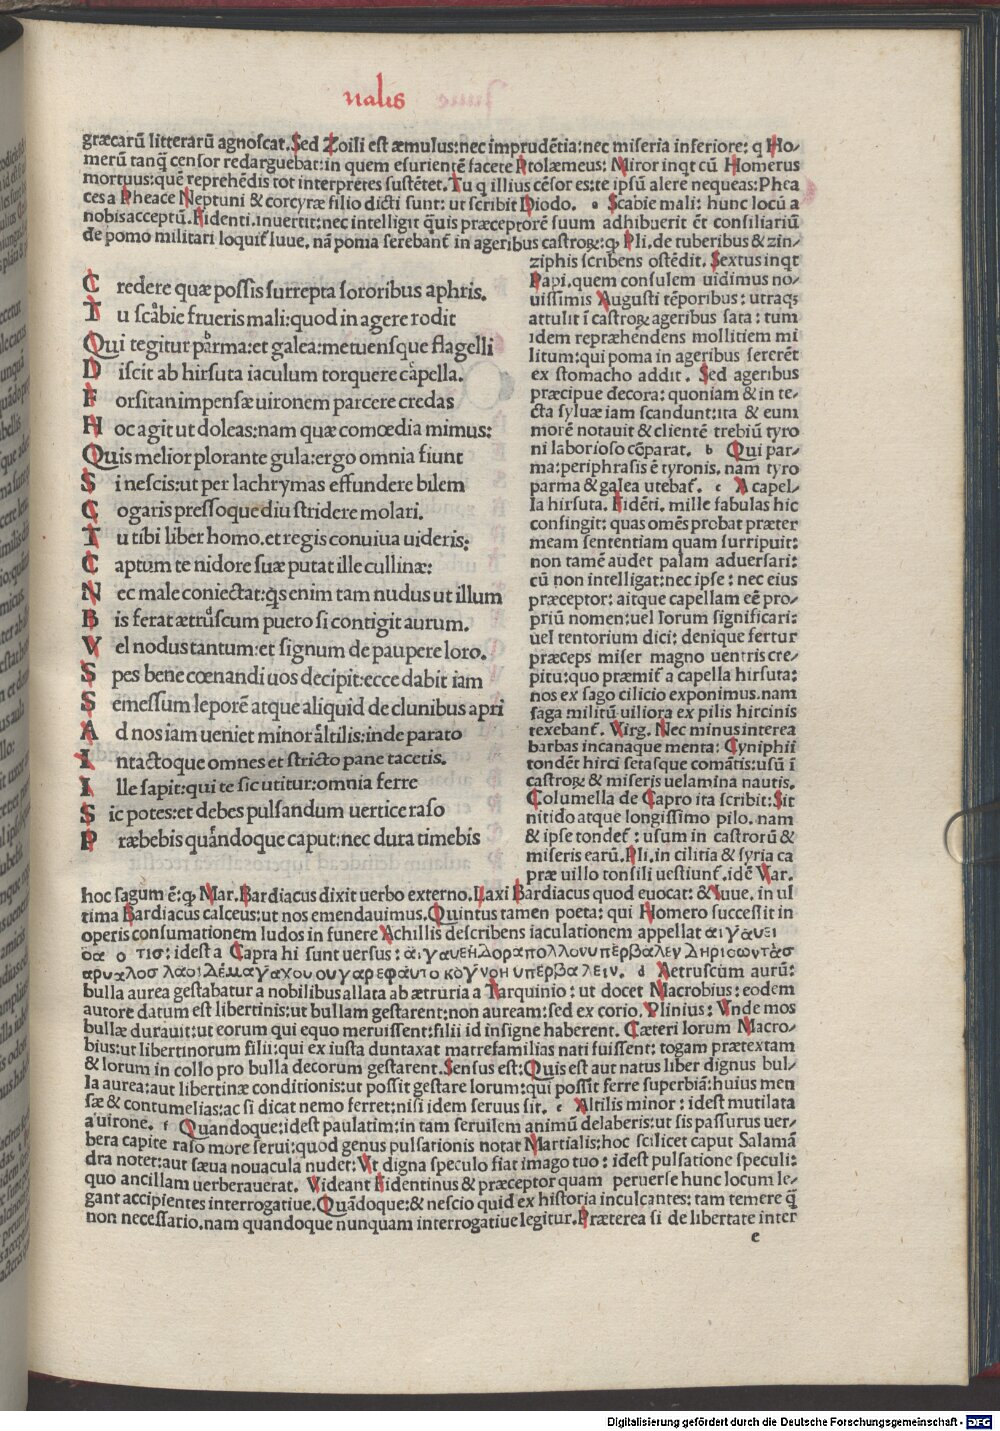 nalis
græcarū litterarū agnoscat. Sed Zoili est æmulus: nec imprudētia: nec miseria inferiore: q Ho/
merū tanq̄ censor redarguebat: in quem esurientē facete Ptolæmeus: Miror inqt cū Homerus
mortuus: quē reprehēdis tot interpretes sustētet. Tu q illius cēsor es: te ipsū alere nequeas: Phea
ces a Pheace Neptuni & corcyræ filio dicti sunt: ut scribit Diodo. a Scabie mali: hunc locū a
nobis acceptū. Fidenti. inuertit: nec intelligit q̄uis præceptorē suum adhibuerit ēt consiliariū
de pomo militari loquit̄ Iuue, nā poma serebant̄ in ageribus castroꝝ: ꝙ Pli. de tuberibus & zin/
C redere quæ possis surrepta sororibus aphris.
T u scabie frueris mali: quod in agere rodit
Qui tegitur parma: et galea: metuensque flagelli
D iscit ab hirsuta iaculum torquere capella.
F orsitan impensæ uironem parcere credas
H oc agit ut doleas: nam quæ comœdia mimus:
Quis melior plorante gula: ergo omnia fiunt
S i nescis: ut per lachrymas effundere bilem
C ogaris pressoque diu stridere molari.
T u tibi liber homo. et regis conuiua uideris:
C aptum te nidore suæ putat ille cullinæ:
N ec male coniectat: q̄s enim tam nudus ut illum
B is ferat ætruscum puero si contigit aurum.
V el nodus tantum: et signum de paupere loro.
S pes bene cœnandi uos decipit: ecce dabit iam
S emessum leporē atque aliquid de clunibus apri
A d nos iam ueniet minor altilis: inde parato
I ntactoque omnes et stricto pane tacetis.
I lle sapit: qui te sic utitur: omnia ferre
S ic potes: et debes pulsandum uertice raso
P ræbebis quandoque caput: nec dura timebis
ziphis scribens ostēdit. Sextus inqt
Papi. quem consulem uidimus no/
uissimis Augusti tēporibus: utraqꝫ
attulit ī castroꝝ ageribus sata: tum
idem repræhendens mollitiem mi
litum: qui poma in ageribus sererēt
ex stomacho addit. Sed ageribus
præcipue decora: quoniam & in te/
cta syluæ iam scandunt: ita & eum
morē notauit & clientē trebiū tyro
ni laborioso cōparat. b Qui par/
ma: periphrasis ē tyronis. nam tyro
parma & galea utebat̄. c A capel/
la hirsuta. Fidēti. mille fabulas hic
confingit: quas omēs probat præter
meam sententiam quam surripuit:
non tamē audet palam aduersari:
cū non intelligat: nec ipse: nec eius
præceptor: aitque capellam eē pro/
priū nomen: uel lorum significari:
uel tentorium dici: denique fertur
præceps miser magno uentris cre/
pitu: quo præmit̄ a capella hirsuta:
nos ex sago cilicio exponimus. nam
saga militū uiliora ex pilis hircinis
texebant̄. Virg. Nec minus interea
barbas incanaque menta: Cyniphii
tondēt hirci setasque comātis: usū ī
castroꝝ & miseris uelamina nautis.
Columella de Capro ita scribit: Sit
nitido atque longissimo pilo. nam
& ipse tondet̄: usum in castrorū &
miseris earū. Pli. in cilitia & syria ca
præ uillo tonsili uestiunt̄. idē Var.
hoc sagum ē: ꝙ Mar. Bardiacus dixit uerbo externo. Laxi Bardiacus quod euocat: & Iuue. in ul
tima Bardiacus calceus: ut nos emendauimus. Quintus tamen poeta: qui Homero successit in
operis consumationem ludos in funere Achillis describens iaculationem appellat
idest a Capra hi sunt uersus:
d Aetruscum aurū:
bulla aurea gestabatur a nobilibus allata ab ætruria a Tarquinio: ut docet Macrobius: eodem
autore datum est libertinis: ut bullam gestarent: non auream: sed ex corio. Plinius: Vnde mos
bullæ durauit: ut eorum qui equo meruissent: filii id insigne haberent. Cæteri lorum Macro/
bius: ut libertinorum filii: qui ex iusta duntaxat matrefamilias nati fuissent: togam prætextam
& lorum in collo pro bulla decorum gestarent. Sensus est: Quis est aut natus liber dignus bul/
la aurea: aut libertinæ conditionis: ut possit gestare lorum: qui possit ferre superbiā: huius men
sæ & contumelias: ac si dicat nemo ferret: nisi idem seruus sit. e Altilis minor: idest mutilata
a uirone. f Quandoque: idest paulatim: in tam seruilem animū delaberis: ut sis passurus uer/
bera capite raso more serui: quod genus pulsationis notat Martialis: hoc scilicet caput Salamā
dra notet: aut sæua nouacula nudet: Vt digna speculo fiat imago tuo: idest pulsatione speculi:
quo ancillam uerberauerat. Videant Fidentinus & præceptor quam peruerse hunc locum le/
gant accipientes interrogatiue. Quādoque: & nescio quid ex historia inculcantes: tam temere q̄
non necessario. nam quandoque nunquam interrogatiue legitur. Præterea si de libertate inter
e
Digitalisierung gefördert durch die Deutsche Forschungsgemeinschaft - DFG